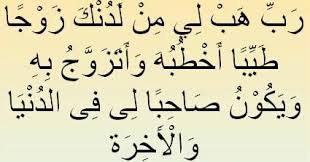 رَبِّ هَبْ لِي مِنْ لَدُنْكَ زَوْجًا
طَيِّبًا أَخْطُبُهُ وَأَتَزَوَّجُ بِهِ
وَيَكُوْنُ صَاحِبًا لِى فِى الدُنْيَا
وَالْأَخِرَة